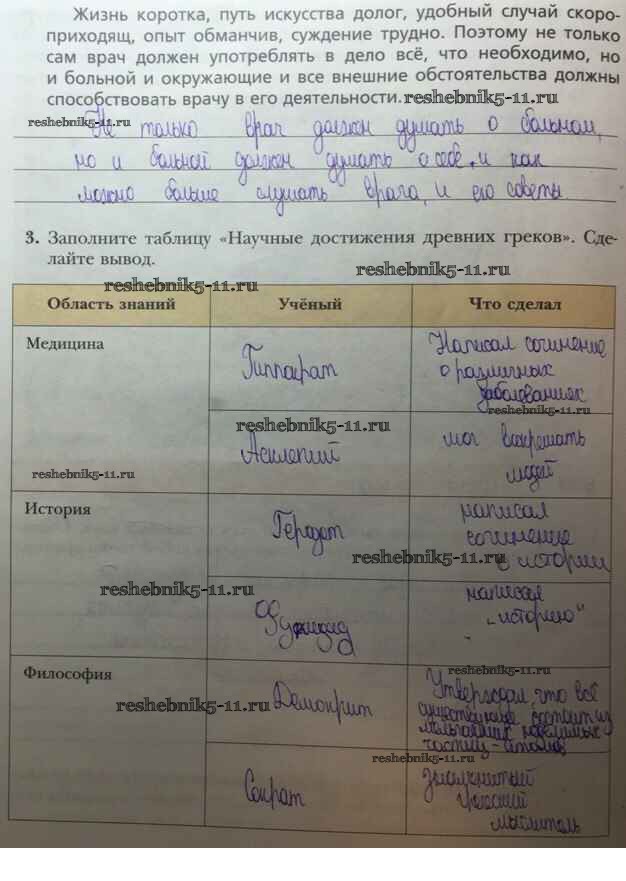 Жизнь коротка, путь искусства долог, удобный случай скоро-
приходящ, опыт обманчив, суждение трудно. Поэтому не только
сам врач должен употреблять в дело всё, что необходимо, но
и больной и окружающие и все внешние обстоятельства должны
способствовать врачу в его деятельности. reshebnik5-11.ru
reshebnik5-11.ru
Не только врач должен думать о больном,
но и больной должен думать о себе, и как
можно больше слушать врача, и его советы
3. Заполните таблицу «Научные достижения древних греков». Сде-
лайте вывод.
reshebnik5-11.ru
reshebnik5-11.ru
Область знаний Учёный Что сделал
Медицина
Гиппократ
Написал сочинение
о различных
заболеваниях
reshebnik5-11.ru
reshebnik5-11.ru
Асклепий
мог воскрешать
людей
reshebnik5-11.ru
История
Геродот
написал
сочинение
о истории
reshebnik5-11.ru
reshebnik5-11.ru
Фукидид
написал
„историю"
Философия
reshebnik5-11.ru
reshebnik5-11.ru
Демокрит
Утверждал, что всё
существующее состоит из
мельчайших неделимых
частиц - атомов
reshebnik5-11.ru
Сократ
знаменитый
греческий
мыслитель